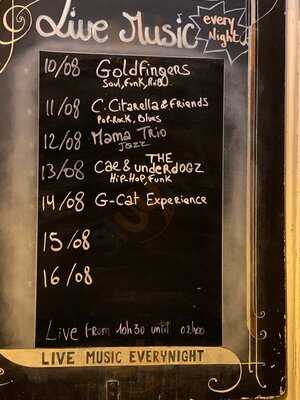 Live Music
every Night
10/08 Goldfingers
Soul, Funk, R&B
11/08 C. Citarella & Friends
Pop-Rock, Blues
12/08 Mama Trio
Jazz
13/08 Cae & THE underdogz
Hip-Hop, Funk
14/08 G-Cat Experience
15/08
16/08
Live From 10h30 until 02h00
LIVE MUSIC EVERYNIGHT